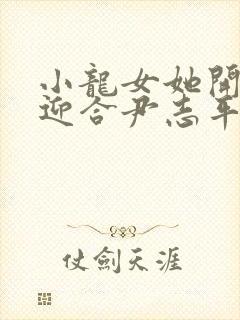 小龍女她開
迎合尹志平
仗劍天涯